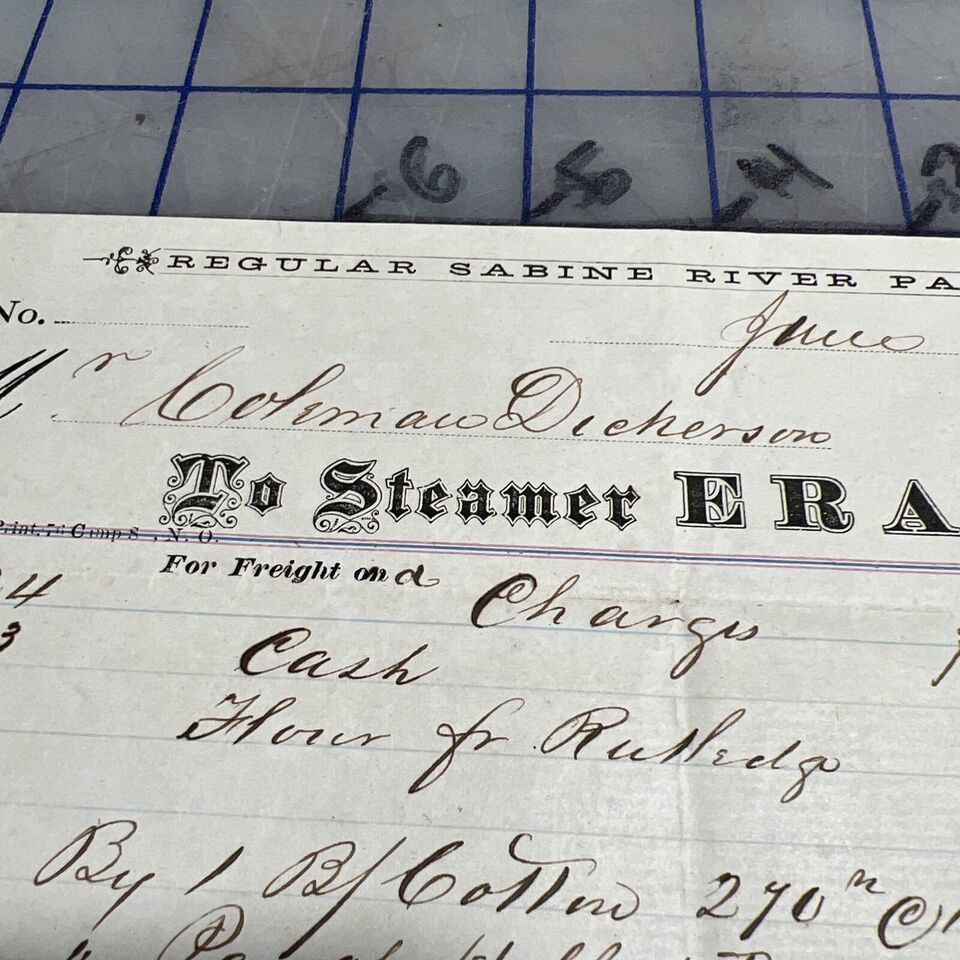 6 5 4
REGULAR SABINE RIVER PA
No.
June
Mr Coleman Dickerson
To Steamer ERA
Print. 76 Camp S , N. O.
For Freight and Charges
4
3
Cash
Flour fr Rutledge
By 1 B/ Cotton 270